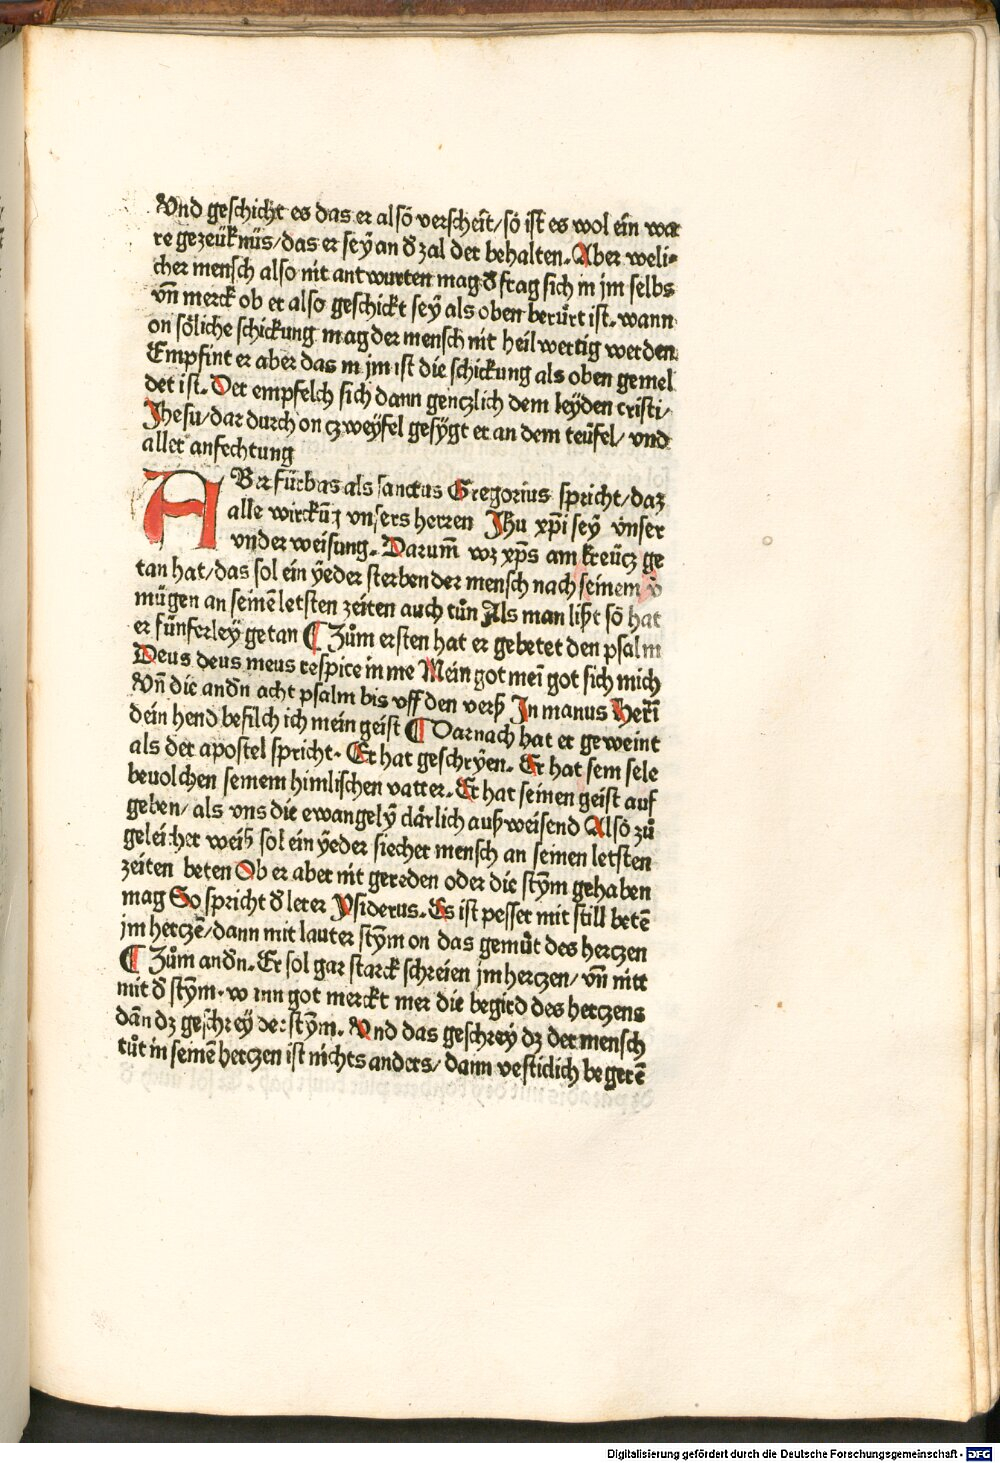 Vnd geschicht es das er alsö verscheīt/sö iſt es wol ein wa
re gezeükniis/das er seÿ an ð zal der behalten. Aber weli⸗
cher mensch also nit antwurten mag ð frag sich in jm selbs
vn̄ merck ob er also geschickt seÿ als oben berürt ist. wann
on söliche schickung mag der mensch nit heilwertig werden
Empfint er aber das in jm ist die schickung als oben gemel
det ist. Der empfelch sich dann genczlich dem leÿden cristi/
Jhesu/dar durch on czweÿfel gesÿgt er an dem teüfel/ vnd
aller anfechtung
ABer fürbas als sanctus Gregorius spricht/daz
alle wirckūg vnsers herren Jhu xp̄i seÿ vnser
vnderweisung. Darum̄ wz xp̄s am kreücz ge
tan hat/das sol ein ÿeder sterbender mensch nach seinem v̄
mügen an seinē letsten zeiten auch tůn Als man lißt sö hat
er fünferleÿ getan ¶ Zům ersten hat er gebetet den psalm
Deus deus meus respice in me Mein got mei got sich mich
Vn̄ die andn̄ acht psalm bis vff den verß In manus Herr̄i
dein hend befilch ich mein geist ¶ Darnach hat er geweint
als der apostel spricht. Er hat geschrÿen. Er hat sein sele
beuolchen seinem himlischen vatter. Er hat seinen geist auf
geben/ als vns die ewangelÿ clärlich außweisend Alsö zů
geleicher weiß sol ein ÿeder siecher mensch an seinen letsten
zeiten beten Ob er aber nit gereden oder die stÿm gehaben
mag So spricht ð lerer Ysiderus. Es ist pesser mit still betē
jm herczē/dann mit lauter stÿm on das gemüt des herczen
¶ Zům andn̄. Er sol gar starck schreien jm herczen/ vn̄ nitt
mit ð stÿm. wann got merckt mer die begird des herczens
dān dz geschreÿ der stÿm. Vnd das geschreÿ dz der mensch
tůt in seinē herczen ist nichts anders/ dann vesticlich begerē
Digitalisierung gefördert durch die Deutsche Forschungsgemeinschaft - DFG